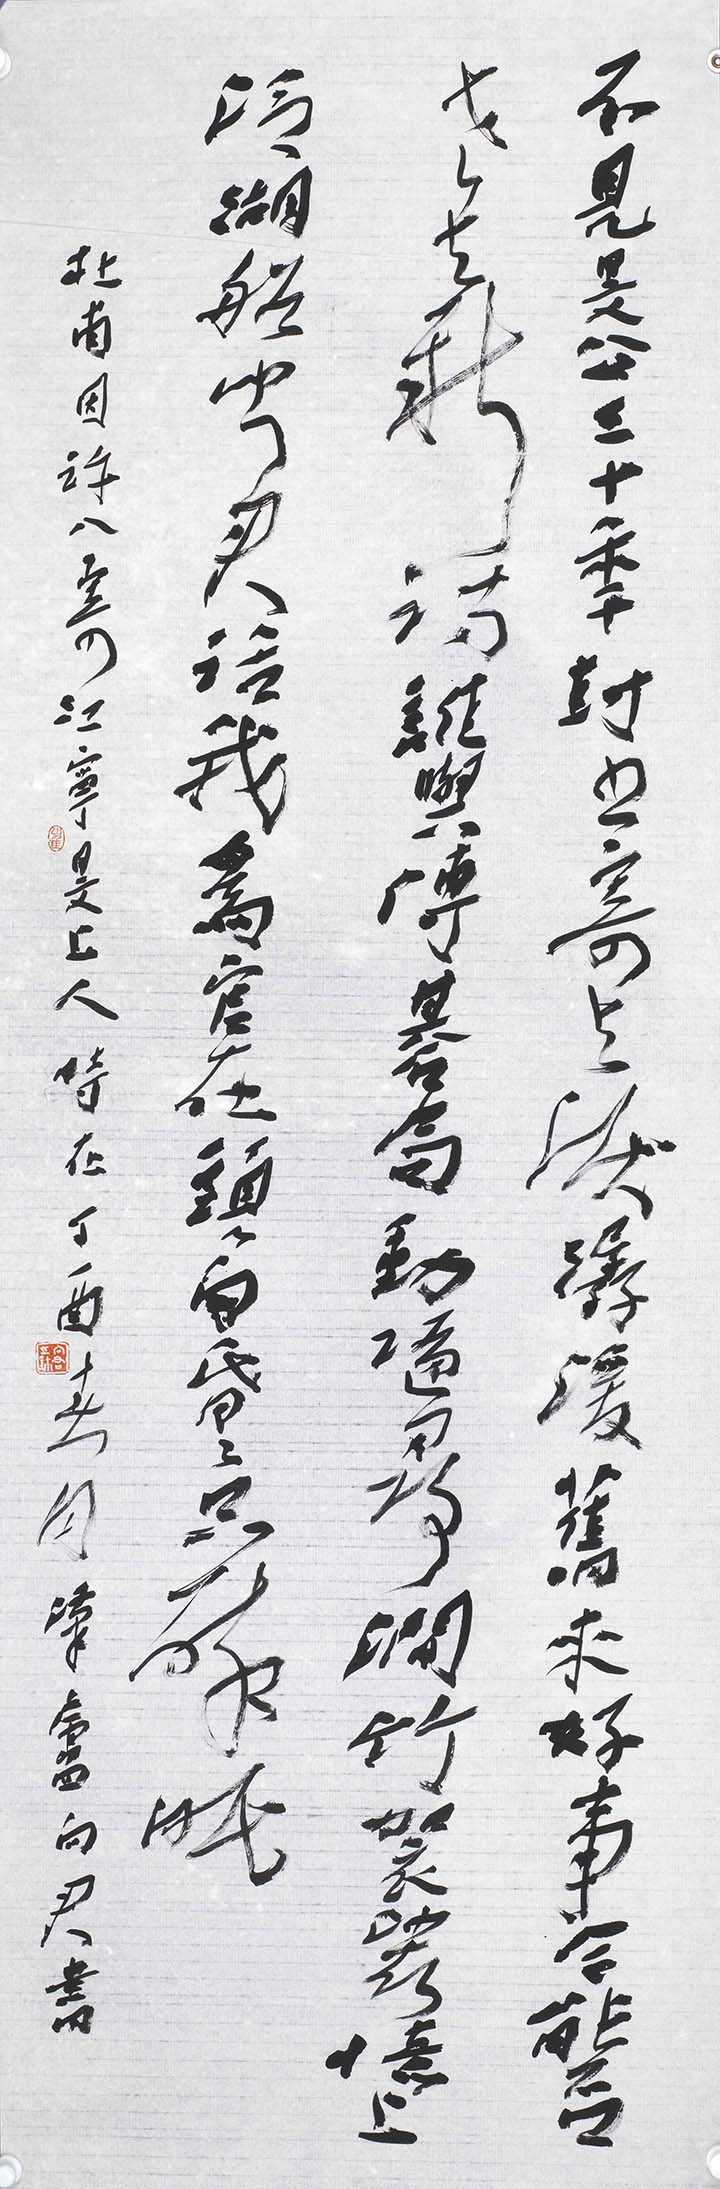 不見旻公三十季封书寄与淚潺湲舊來好事今能否
老去新詩誰與傳棊局動隨尋澗竹袈裟憶上
泛湖船聞君話我為官在頭白昏々只醉眠
杜甫因許八寄江寧旻上人時在丁酉春月向君書